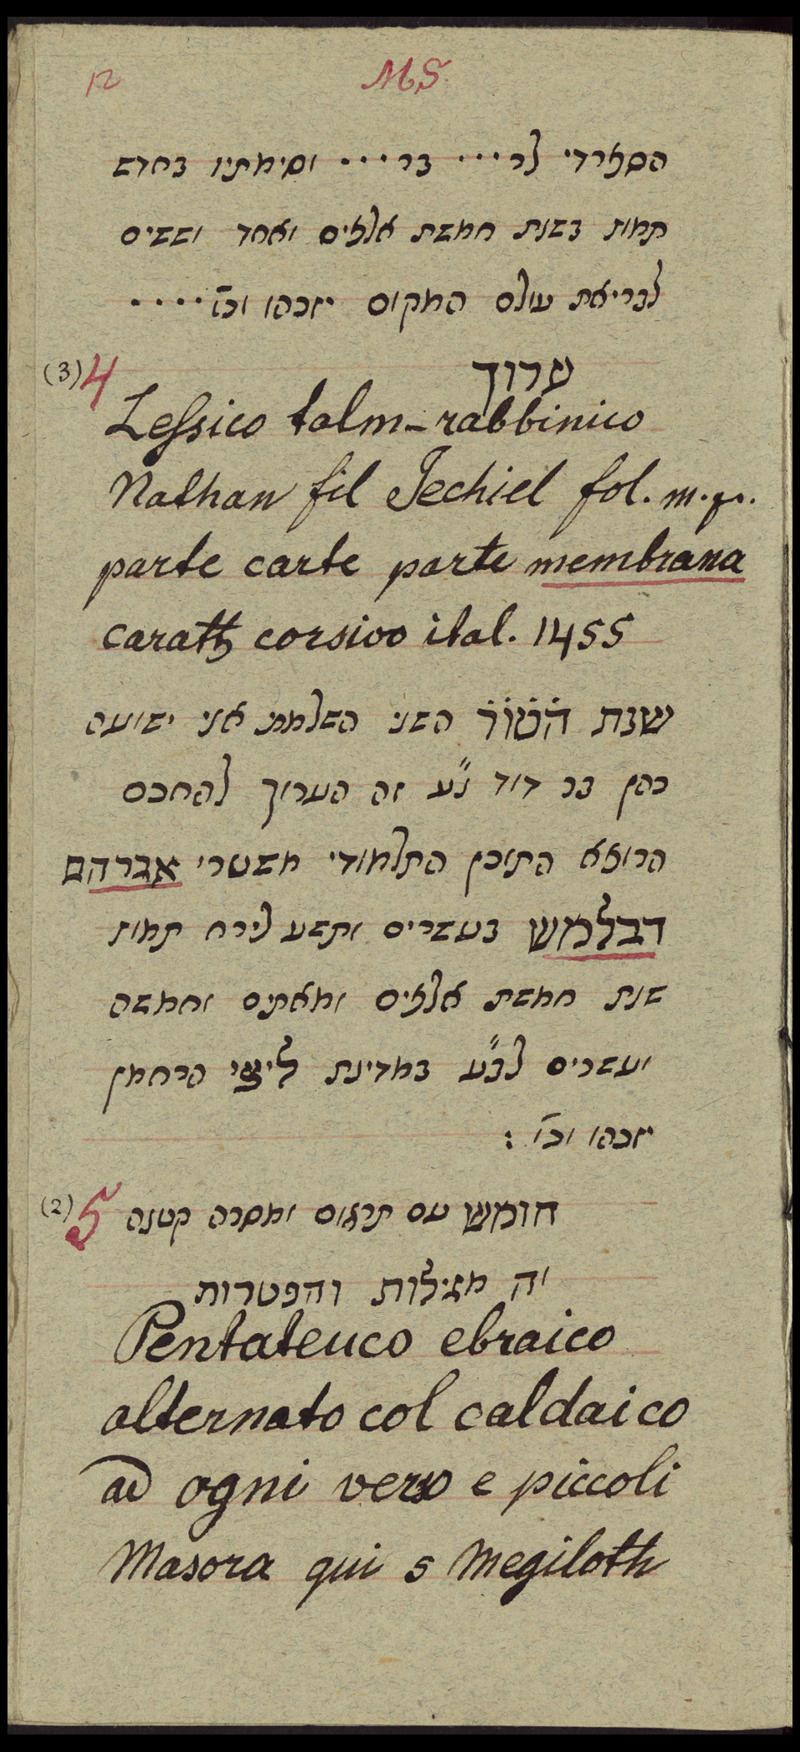 12 MS
הספרדי לר.... בר.... וסימתיו בחדש
תמוז בשנת חמשת אלפים ואחד וששים
לבריאת עולם המקום יזכהו וכו' ....
(3) 4 ערוך
Lessico talm-rabbinico
Nathan fil Jechiel fol. m. gr.
parte carte parte membrana
caratt corsivo ital. 1455
שנת הטור השני השלמתי אני ישועה
כהן בר דוד נ"ע זה הערוך להחכם
הרופא התוכן התלמודי משטרי אברהם
דבלמש בעשרים ותשע לירח תמוז
שנת חמשת אלפים ומאתים וחמשה
ועשרים לב"ע במדינת ליצי הרחמן
יזכהו וכו' :
(2) 5 חומש עם תרגום ומסרה קטנה
וה מגילות והפטרות
Pentateuco ebraico
alternato col caldaico
ad ogni verso e piccoli
Masora qui 5 Megiloth